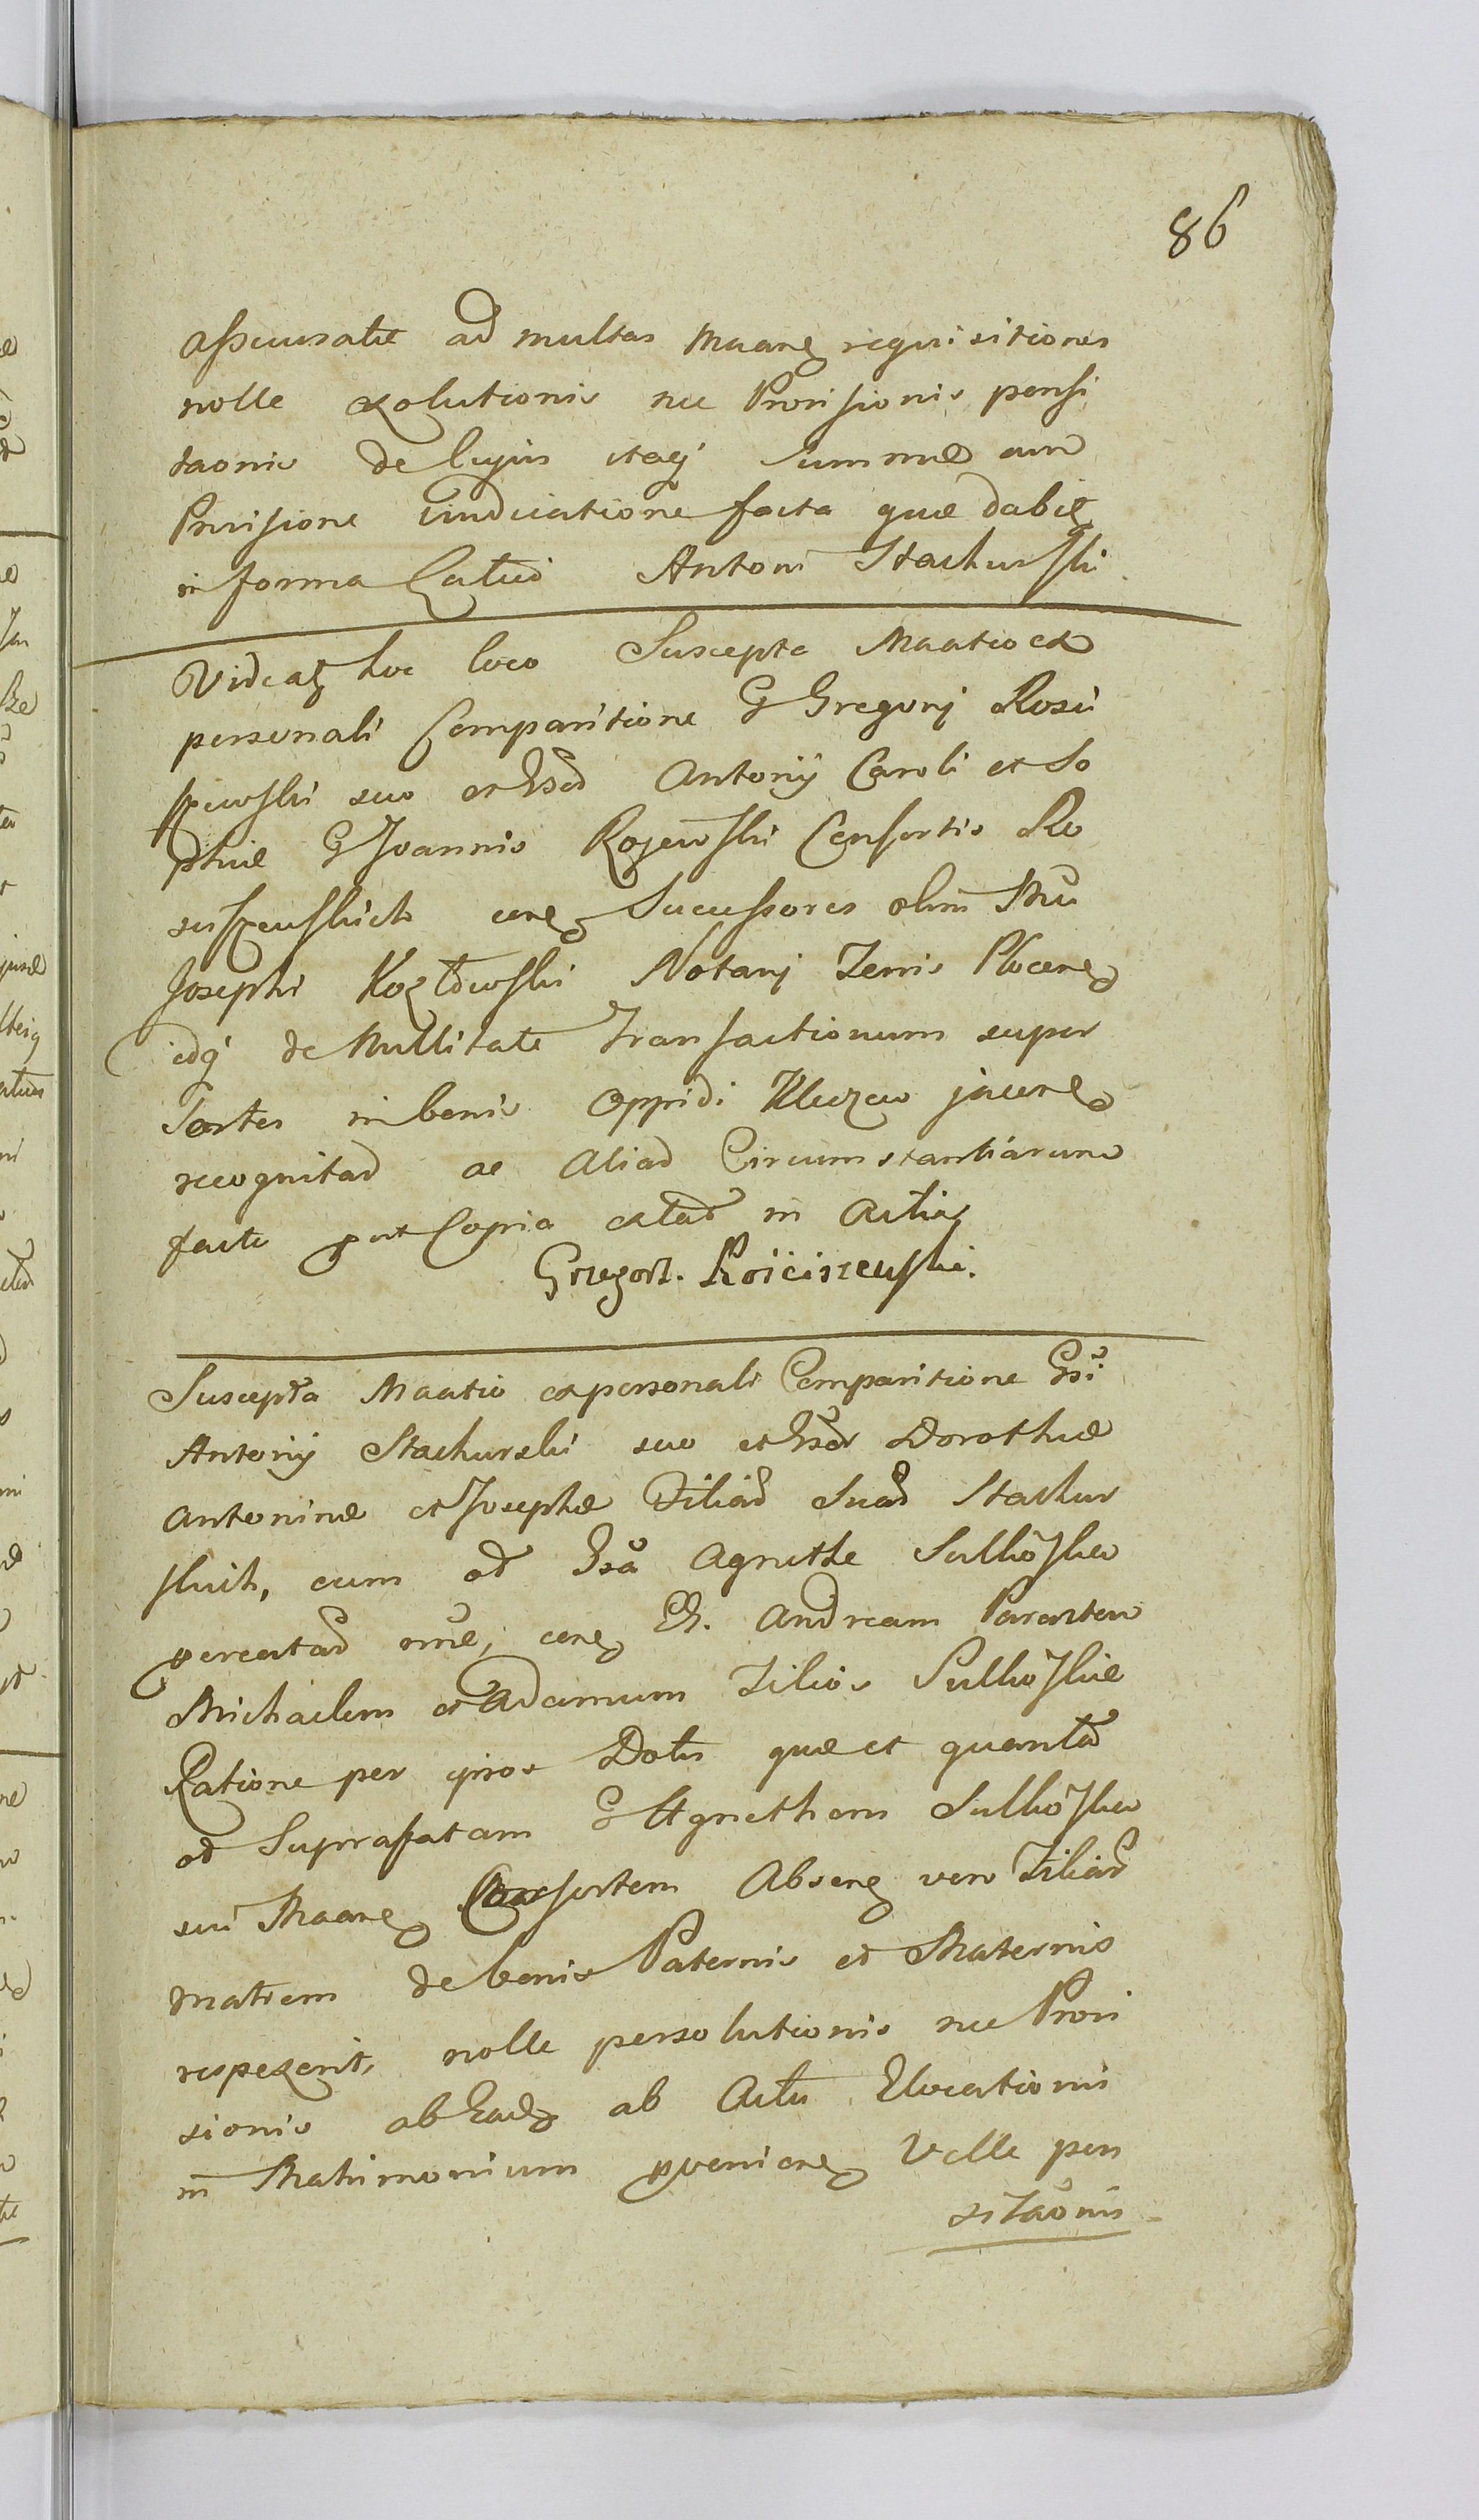 86
assecuratae ad multas Maane requisitiones
nolle exolutionis nec Provisionis pensi
taonis de Cujus itaq summae cum
Provisione vindicatione facta quae dabit
in forma Antoni Stachurski
Videat hoc loco Suscepta Maatio ex
personali Comparitione G Gregorij Rosci
szewski suo et Antonij Caroli et So
phiae G Joannis Rojewski Consortis Ro
sciszewskich cone Successores olim
Josephi Kozłowski Notarij Terris Plocen
idq de Nullitate Transactionum super
Sortes in bonis Oppidi Kluzew jacen
recognitar ac Aliar Circumstantiarum
facte prt Copia extat in Actis
Grzegorz. Rościszewski.
Suscepta Maatio ex personali Comparitione Gsi
Antonij Stachurski suo et Dorothae
Antoninae et Josephae Filiar Suar Stachur
skich, cum ad Gsa Agnethe Sulkoska
percatar cone G. Andream Parentem
Michaelem et Adamum Filios Sulkoskie
Ratione per ipsos Dotis quae et quanta
ad Suprafatam G Agnetham Sulkoska
sui Maane Consortem Absen vero Filiar
matrem de bonis Paternis et Maternis
respexerit, nolle persolutionis nec Provi
sionis ab Eade ab Actu Elocationis
in Matrimonium pvenien Velle pen
sitaonis